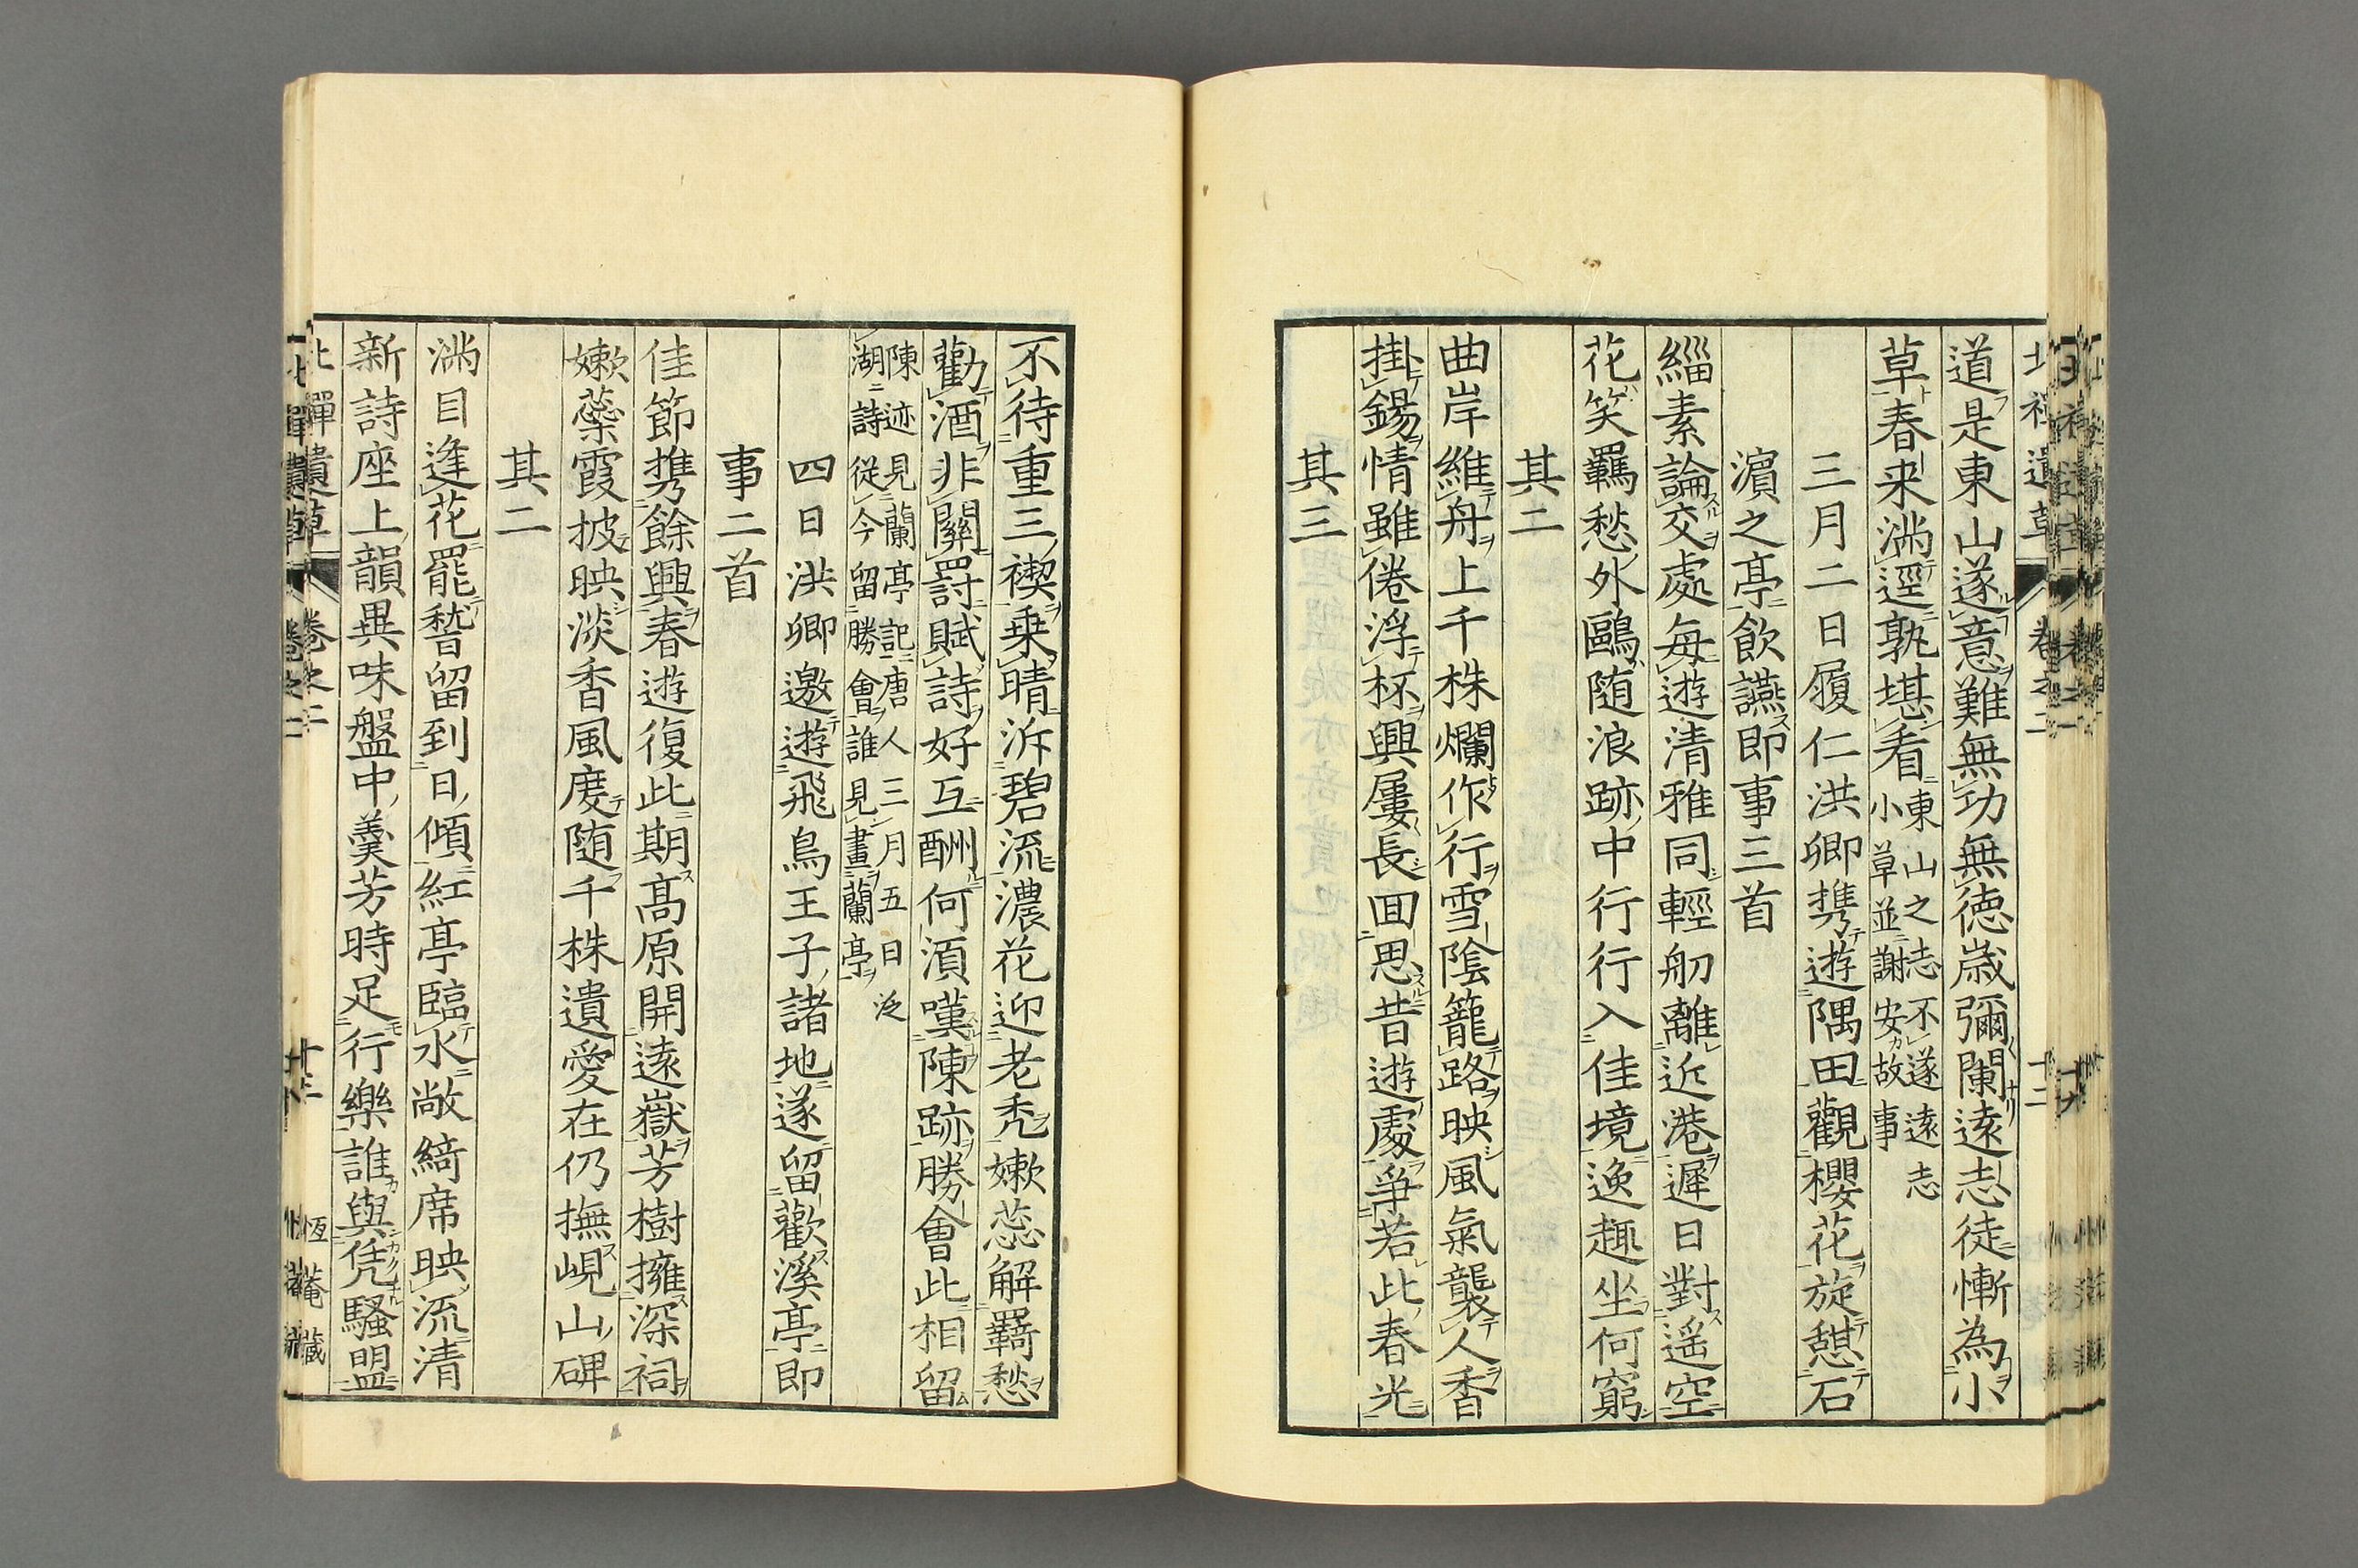 道是東山遂意難無功無徳歳彌闌遠志徒慚為小
草春来満逕孰堪看東山之志不遂遠志
小草並謝安故事
三月二日履仁洪卿携遊隅田觀櫻花旋憩石
濵之亭飲讌即事三首
緇素論交處毎遊清雅同輕舠離近港遲日對遥空
花笑羈愁外鷗随浪跡中行行入佳境逸趣坐何窮
其二
曲岸維舟上千株爛作行雪陰籠路映風氣襲人香
掛錫情雖倦浮杯興屢長回思昔遊處爭若此春光
其三
不待重三禊乗晴泝碧流濃花迎老禿嫩蕊解羇愁
勸酒非關罸賦詩好互酬何湏嘆陳跡勝會此相留
陳迹見蘭亭記唐人三月五日泛
湖詩從今留勝會誰見畫蘭亭
四日洪卿邀遊飛鳥王子諸地遂留歡溪亭即
事二首
佳節携餘興春遊復此期髙原開遠嶽芳樹擁深祠
嫩蘂霞披映淡香風度随千株遺愛在仍撫峴山碑
其二
満目逢花罷嵆留到日傾紅亭臨水敞綺席映流清
新詩座上韻異味盤中羮芳時足行樂誰與凭騒盟
北禅遺草 卷之二 恆菴藏